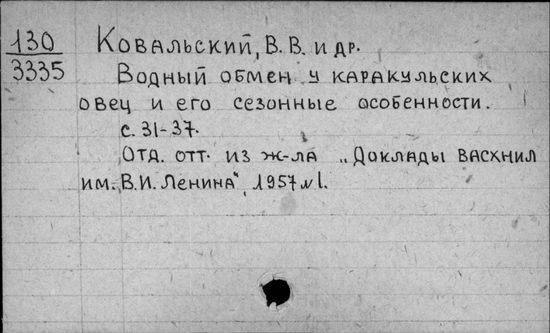 130 Ковальский, В. В. и др.
3335 Водный обмен у каракульских
овец и его сезонные особенности.
с. 31-37.
Отд. отт. из ж-ла „Доклады ВАСХНИЛ
им. В.И. Ленина", 1957 №1.